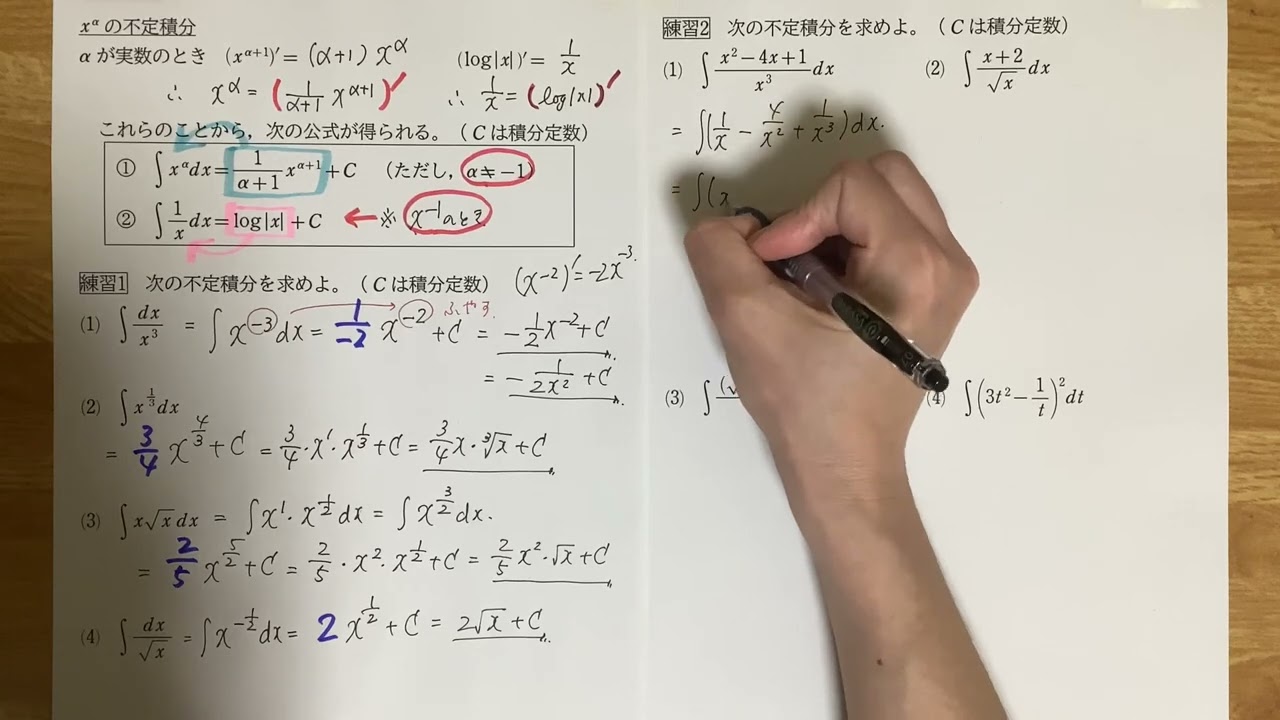 x^α の不定積分
α が実数のとき (x^{α+1})′= (α+1) x^α (log|x|)′= 1/x
∴ x^α = (1/(α+1) x^{α+1})′ ∴ 1/x = (log|x|)′
これらのことから，次の公式が得られる。（C は積分定数）
① ∫x^α dx = 1/(α+1) x^{α+1} + C （ただし，α ≠ −1）
② ∫1/x dx = log|x| + C ← ※ x^{-1}のとき
練習1 次の不定積分を求めよ。（C は積分定数） (x^{-2})′= -2x^{-3}.
(1) ∫dx/x³ = ∫x^{-3}dx = 1/-2 x^{-2} + C ふやす = -1/2 x^{-2} + C
= -1/(2x²) + C
(2) ∫x^{1/3}dx
= 3/4 x^{4/3} + C = 3/4・x¹・x^{1/3} + C = 3/4 x・³√x + C
(3) ∫x√x dx = ∫x¹・x^{1/2}dx = ∫x^{3/2}dx.
= 2/5 x^{5/2} + C = 2/5・x²・x^{1/2} + C = 2/5 x²・√x + C
(4) ∫dx/√x = ∫x^{-1/2}dx = 2 x^{1/2} + C = 2√x + C
練習2 次の不定積分を求めよ。（C は積分定数）
(1) ∫(x²−4x+1)/x³ dx (2) ∫(x+2)/√x dx
= ∫(1/x − 4/x² + 1/x³)dx.
= ∫(x
(3) ∫ (4) ∫(3t²−1/t)²dt